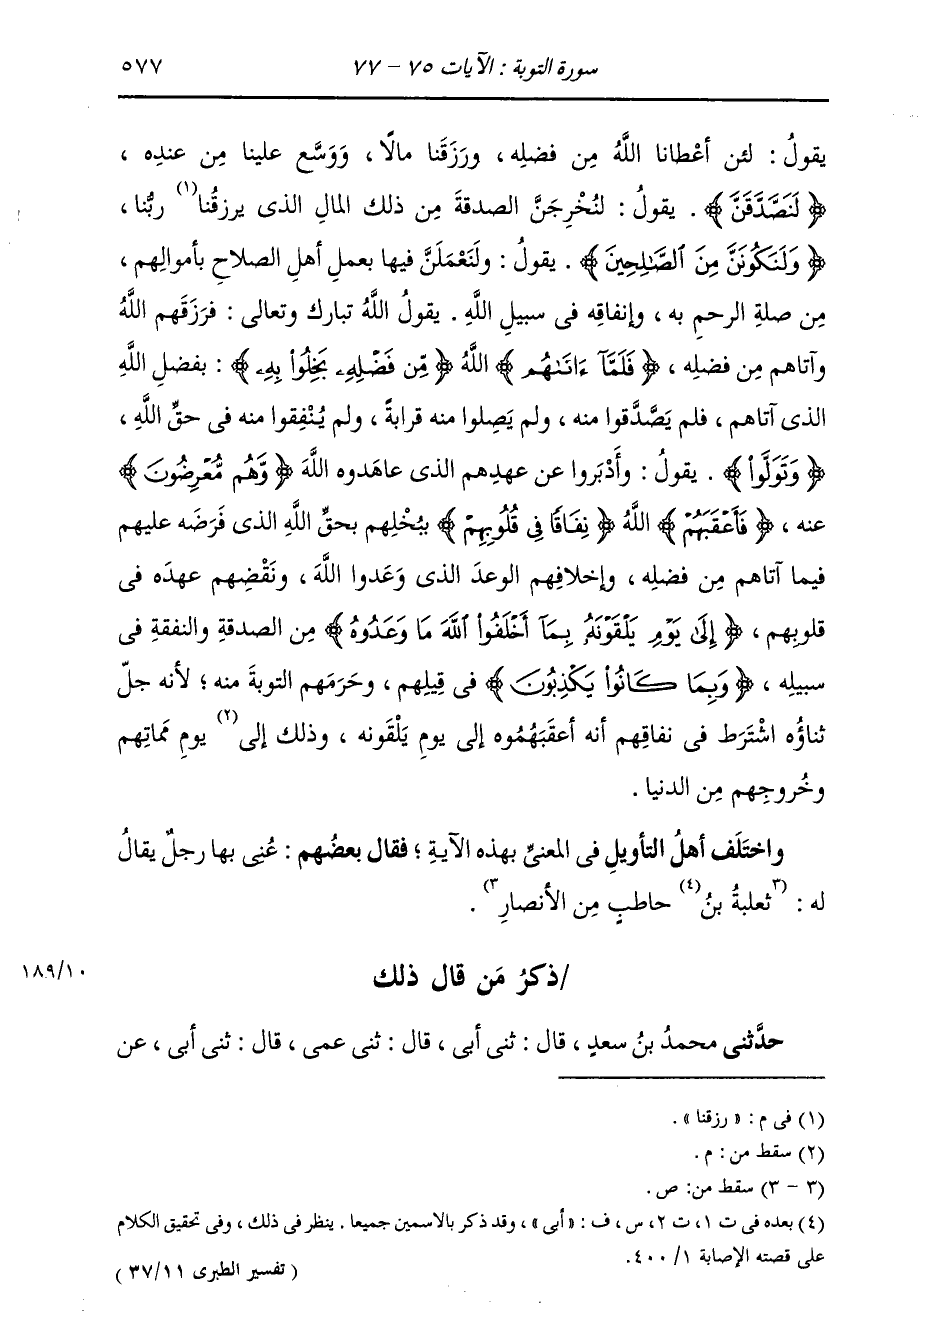 سورة التوبة : الآيات ٧٥ - ٧٧ ٥٧٧
يقولُ : لئن أعْطانا اللَّهُ مِن فضلِه ، ورَزَقَنا مالًا ، وَوَسَّع علينا مِن عندِه ،
﴿ لَنَصَّدَّقَنَّ ﴾ . يقولُ : لنُخْرِجَنَّ الصدقةَ مِن ذلك المالِ الذى يرزقُنا(١) ربُّنا ،
﴿ وَلَنَكُونَنَّ مِنَ ٱلصَّٰلِحِينَ ﴾ . يقولُ : ولَنَعْمَلَنَّ فيها بعملِ أهلِ الصلاحِ بأموالِهم ،
مِن صلةِ الرحمِ به ، وإنفاقِه فى سبيلِ اللَّهِ . يقولُ اللَّهُ تبارك وتعالى : فرَزَقَهم اللَّهُ
وآتاهم مِن فضلِه ، ﴿ فَلَمَّآ ءَاتَىٰهُم ﴾ اللَّهُ ﴿ مِّن فَضْلِهِۦ بَخِلُواْ بِهِۦ ﴾ : بفضلِ اللَّهِ
الذى آتاهم ، فلم يَصَّدَّقوا منه ، ولم يَصِلوا منه قرابةً ، ولم يُنْفِقوا منه فى حقِّ اللَّهِ ،
﴿ وَتَوَلَّواْ ﴾ . يقولُ : وأَدْبَروا عن عهدِهم الذى عاهَدوه اللَّهَ ﴿ وَّهُم مُّعْرِضُونَ ﴾
عنه ، ﴿ فَأَعْقَبَهُمْ ﴾ اللَّهُ ﴿ نِفَاقًا فِى قُلُوبِهِمْ ﴾ ببُخْلِهم بحقِّ اللَّهِ الذى فَرَضَه عليهم
فيما آتاهم مِن فضلِه ، وإخلافِهم الوعدَ الذى وَعَدوا اللَّهَ ، ونَقْضِهم عهدَه فى
قلوبِهم ، ﴿ إِلَىٰ يَوْمِ يَلْقَوْنَهُۥ بِمَآ أَخْلَفُواْ ٱللَّهَ مَا وَعَدُوهُ ﴾ مِن الصدقةِ والنفقةِ فى
سبيلِه ، ﴿ وَبِمَا كَانُواْ يَكْذِبُونَ ﴾ فى قِيلِهم ، وحَرَمَهم التوبةَ منه ؛ لأنه جلّ
ثناؤُه اشْتَرَط فى نفاقِهم أنه أعقَبَهُمُوه إلى يومِ يَلْقَونه ، وذلك إلى(٢) يومِ مَماتِهم
وخُروجِهم مِن الدنيا .
واختَلَف أهلُ التأويلِ فى المعنىِّ بهذه الآيةِ ؛ فقال بعضُهم : عُنِى بها رجلٌ يقالُ
له : (٣ ثعلبةُ بنُ(٤) حاطبٍ مِن الأنصارِ ٣) .
/ذكرُ مَن قال ذلك ١٨٩/١٠
حدَّثنى محمدُ بنُ سعدٍ ، قال : ثنى أبى ، قال : ثنى عمى ، قال : ثنى أبى ، عن
(١) فى م : « رزقنا » .
(٢) سقط من : م .
(٣ - ٣) سقط من: ص .
(٤) بعده فى ت ١، ت ٢، س ، ف : «أبى» ، وقد ذكر بالاسمين جميعا . ينظر فى ذلك ، وفى تحقيق الكلام
على قصته الإصابة ١/ ٤٠٠.
( تفسير الطبرى ٣٧/١١ )